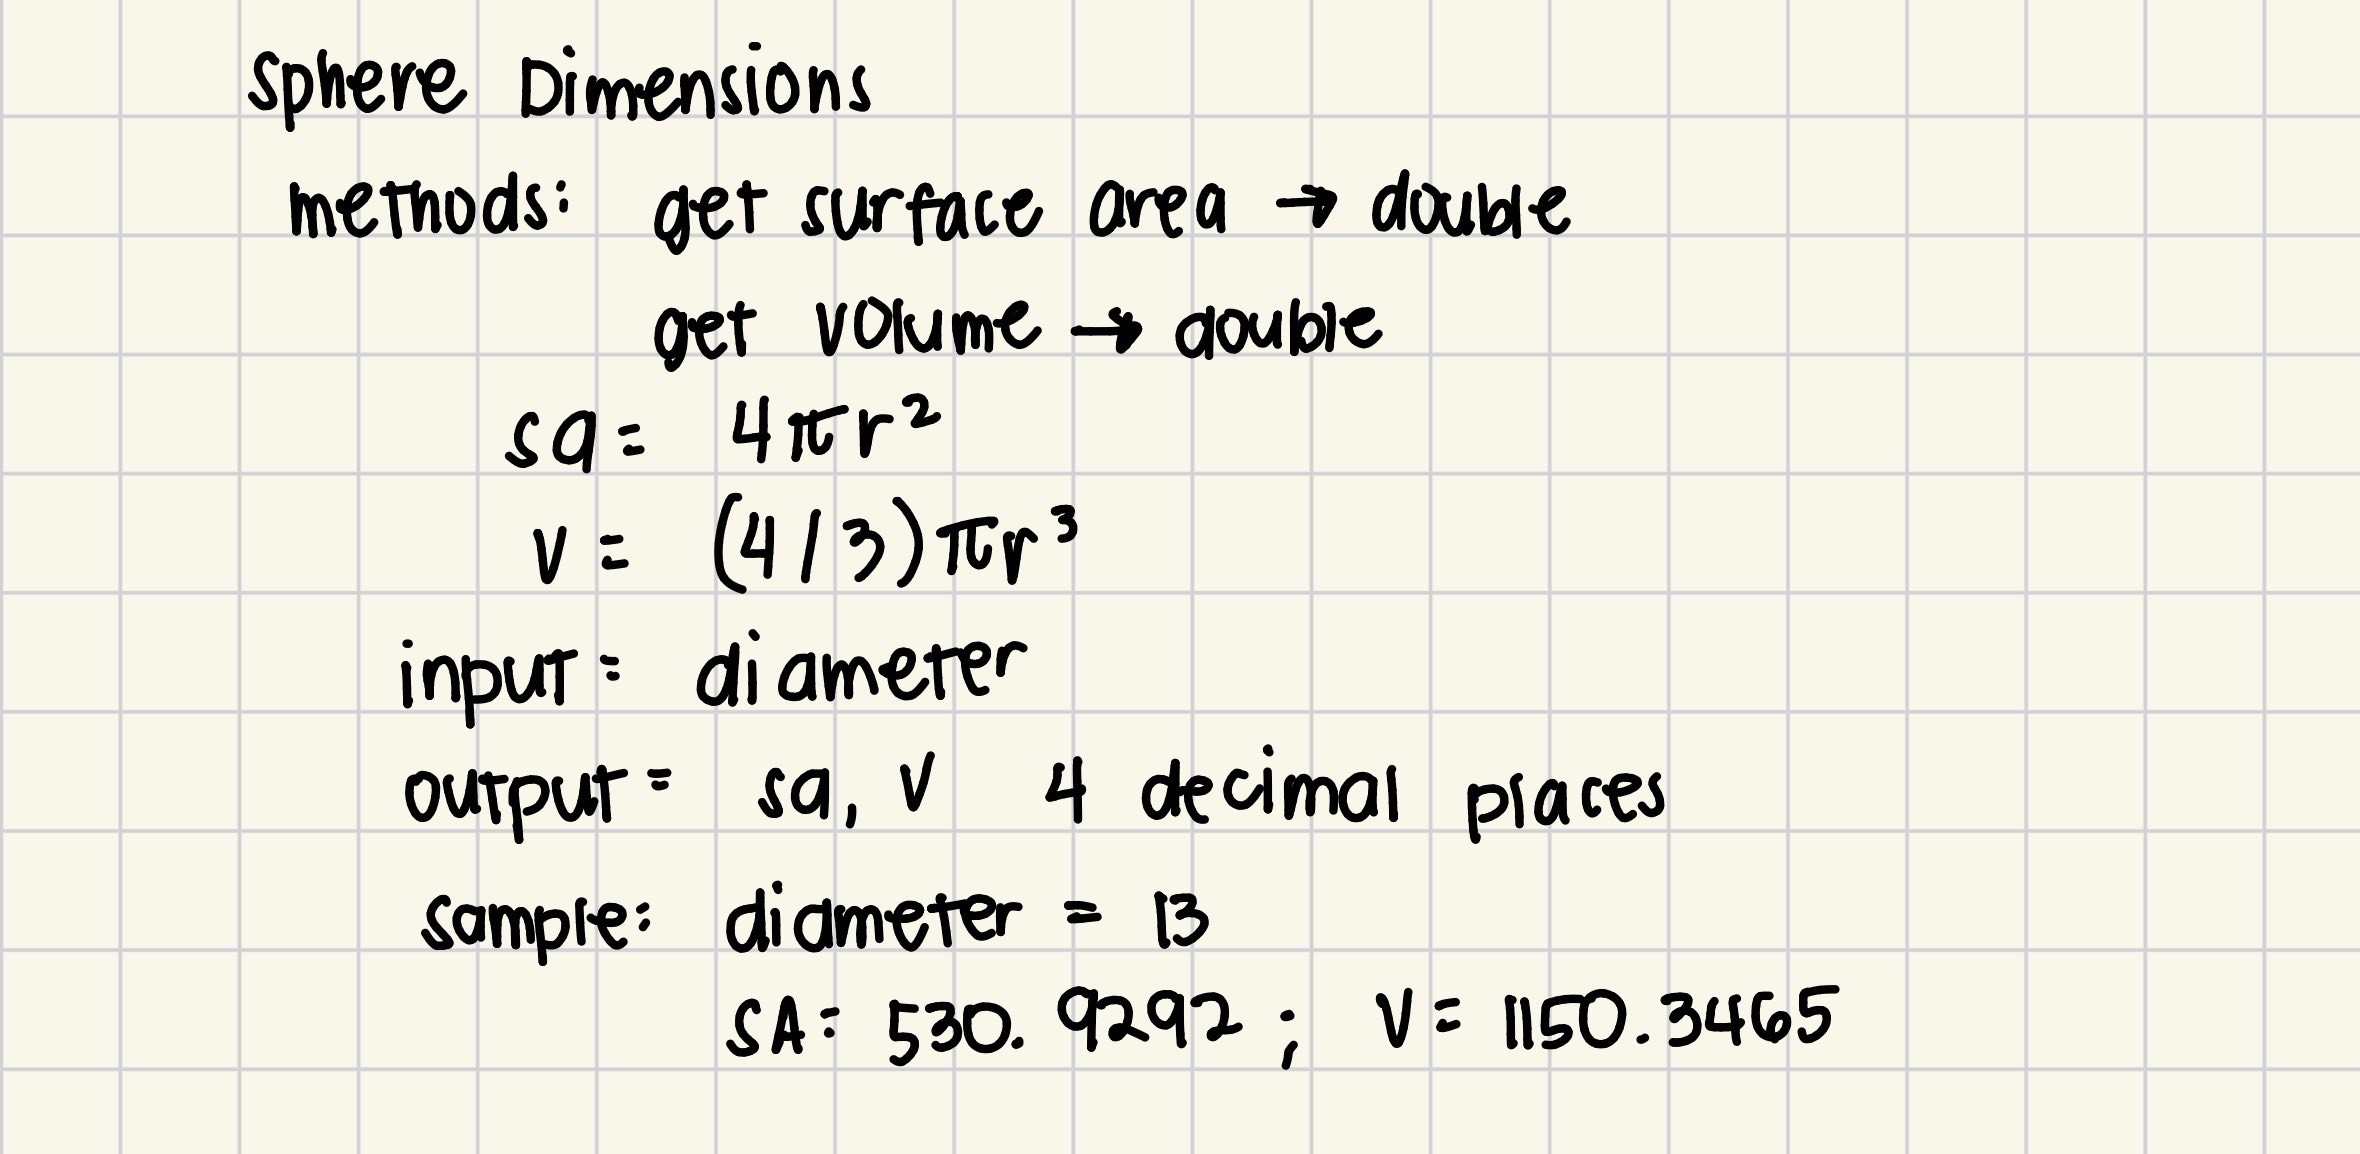 Sphere Dimensions
methods: get surface area → double
get volume → double
sa = 4πr²
V = (4/3)πr³
input = diameter
output = sa, V 4 decimal places
sample: diameter = 13
SA = 530.9292 ; V = 1150.3465